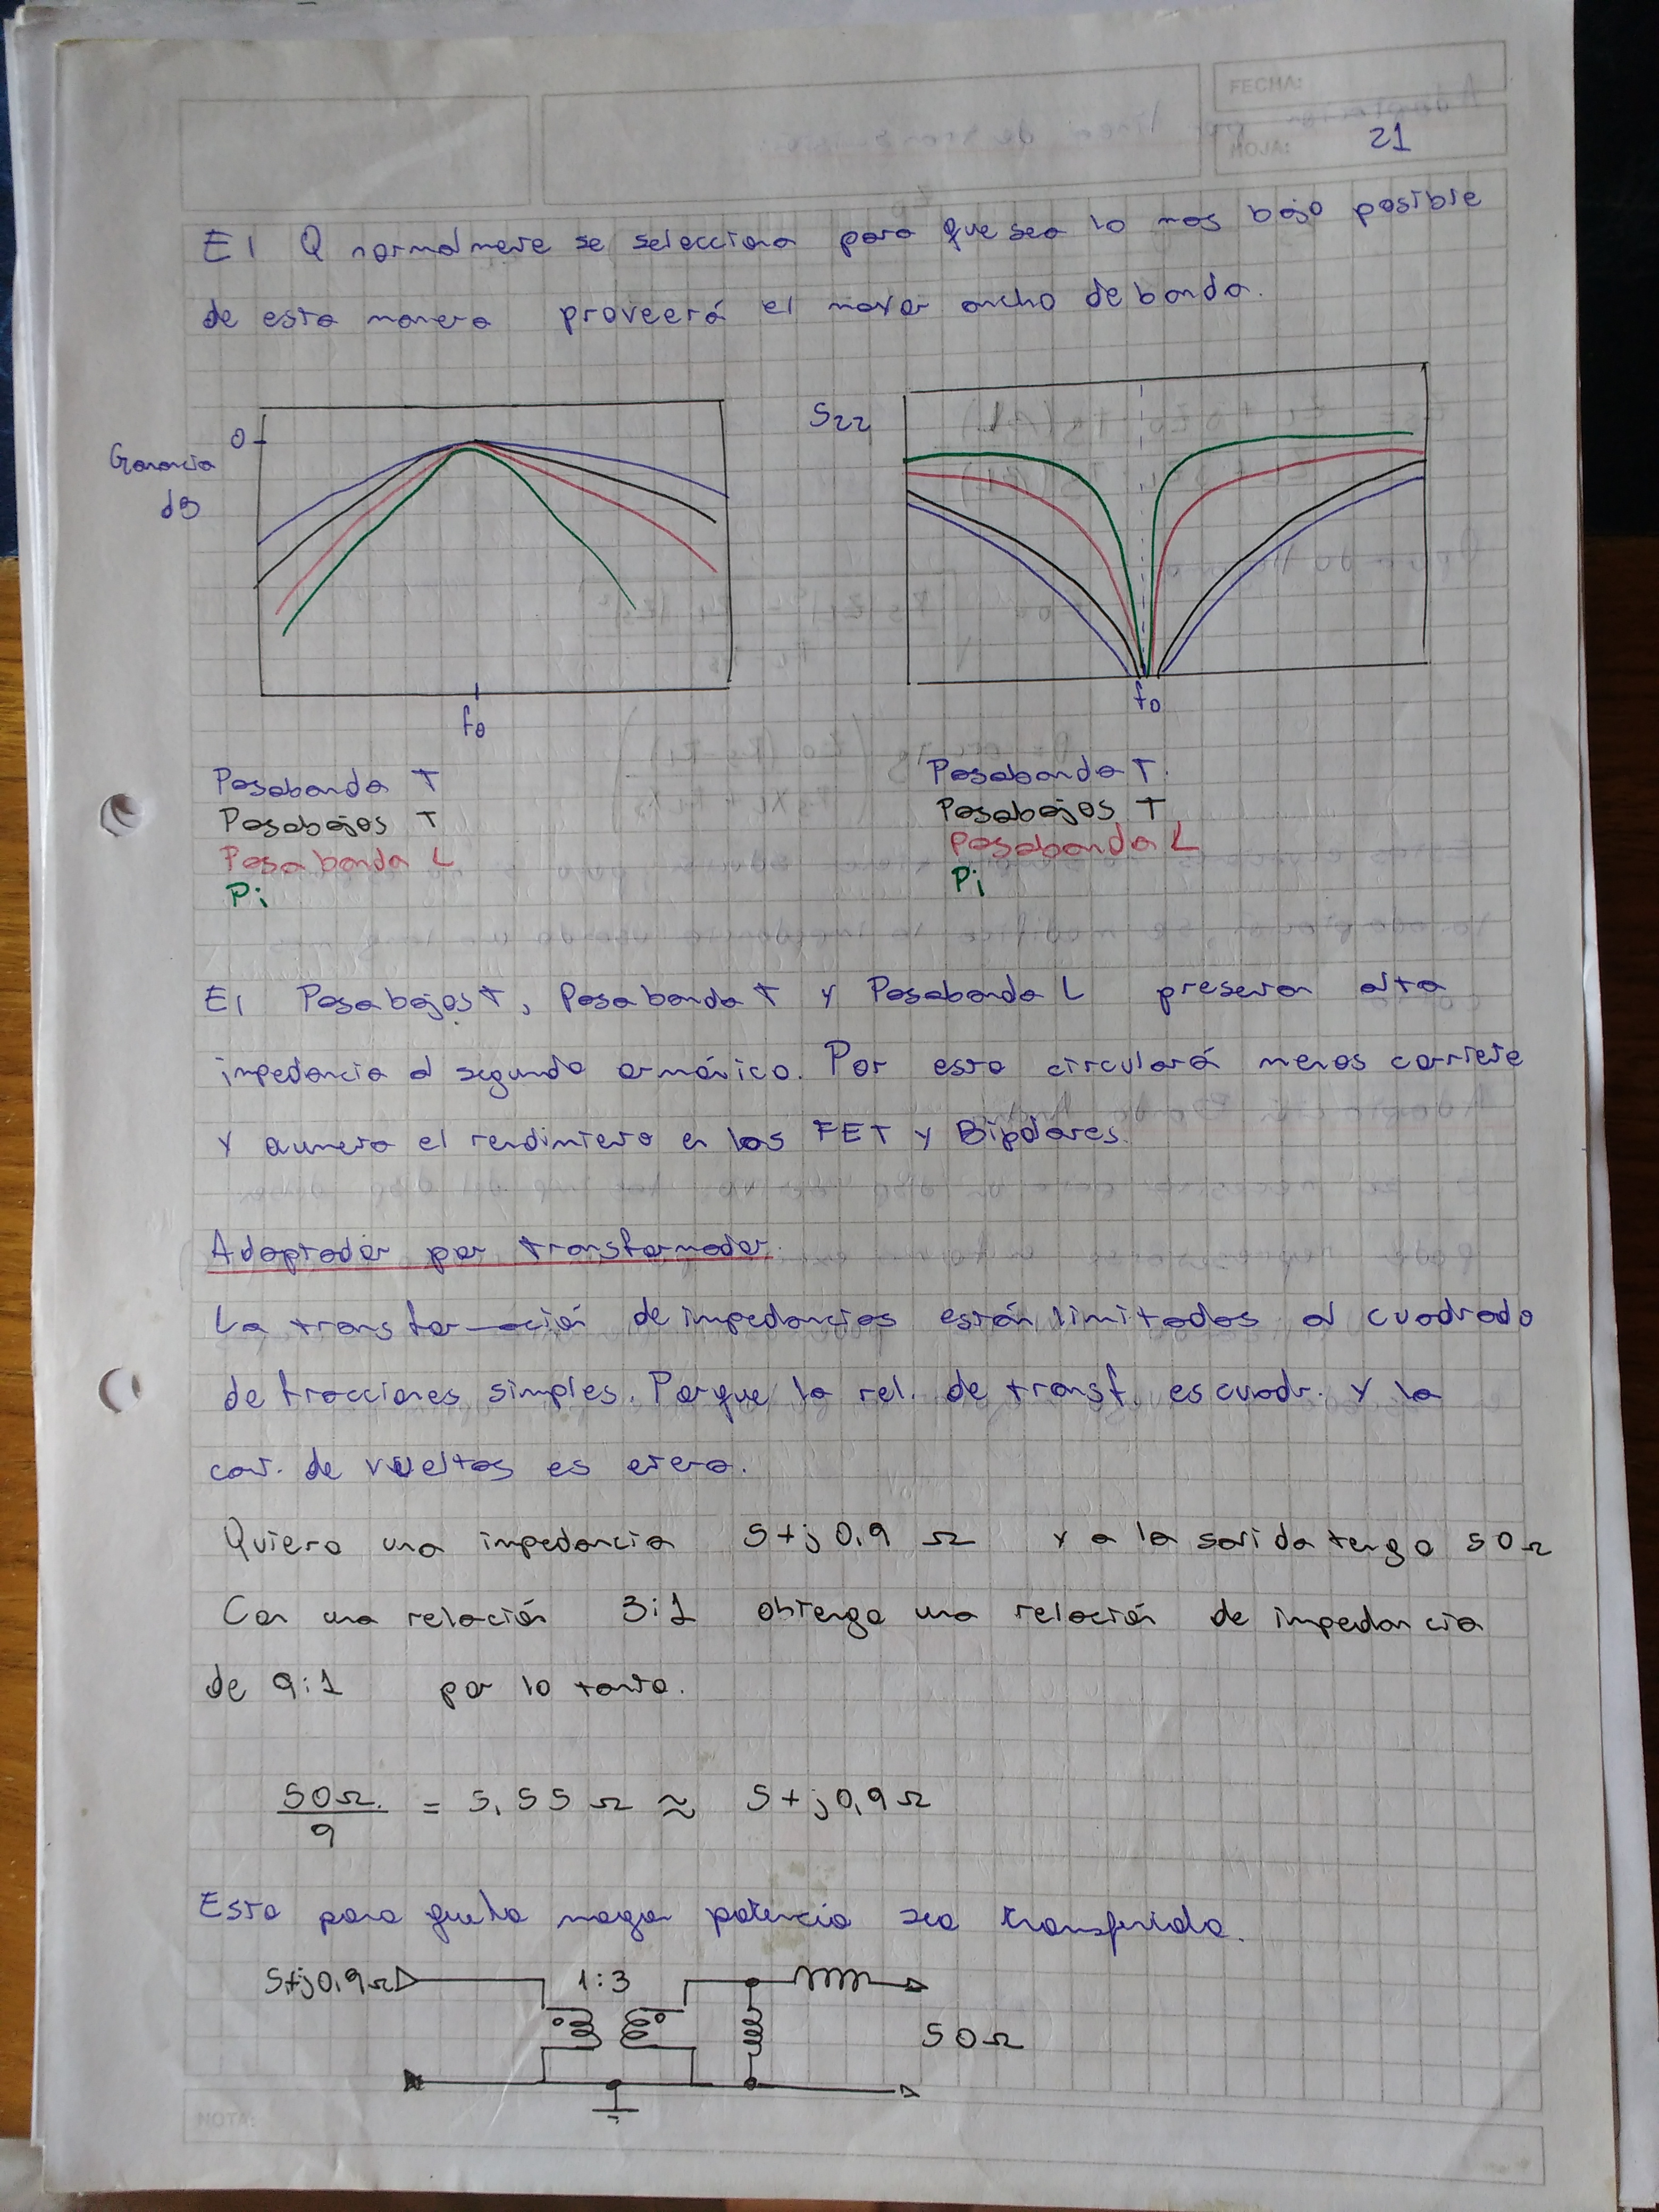 FECHA:
HOJA: 21
El Q normalmente se selecciona para que sea lo mas bajo posible
de esta manera proveerá el mayor ancho de banda.
Ganancia
dB
0
f0
S22
f0
Pasabanda T
Pasabajos T
Pasabanda L
Pi
Pasabanda T.
Pasabajos T
Pasabanda L
Pi
El Pasabajos T, Pasabanda T y Pasabanda L presentan alta
impedancia al segundo armónico. Por esto circulará menos corriente
y aumenta el rendimiento en los FET y Bipolares.
Adaptador por transformador.
La transformación de impedancias están limitados al cuadrado
de fracciones simples. Porque la rel. de transf. es cuadr. y la
cant. de vueltas es entera.
Quiero una impedancia 5+j0,9 Ω y a la salida tengo 50Ω
Con una relación 3:1 obtengo una relación de impedancia
de 9:1 por lo tanto.
50Ω / 9 = 5,55 Ω ≈ 5+j0,9Ω
Esto para que la mayor potencia sea transferida.
5+j0,9Ω 1:3
50Ω
NOTA: